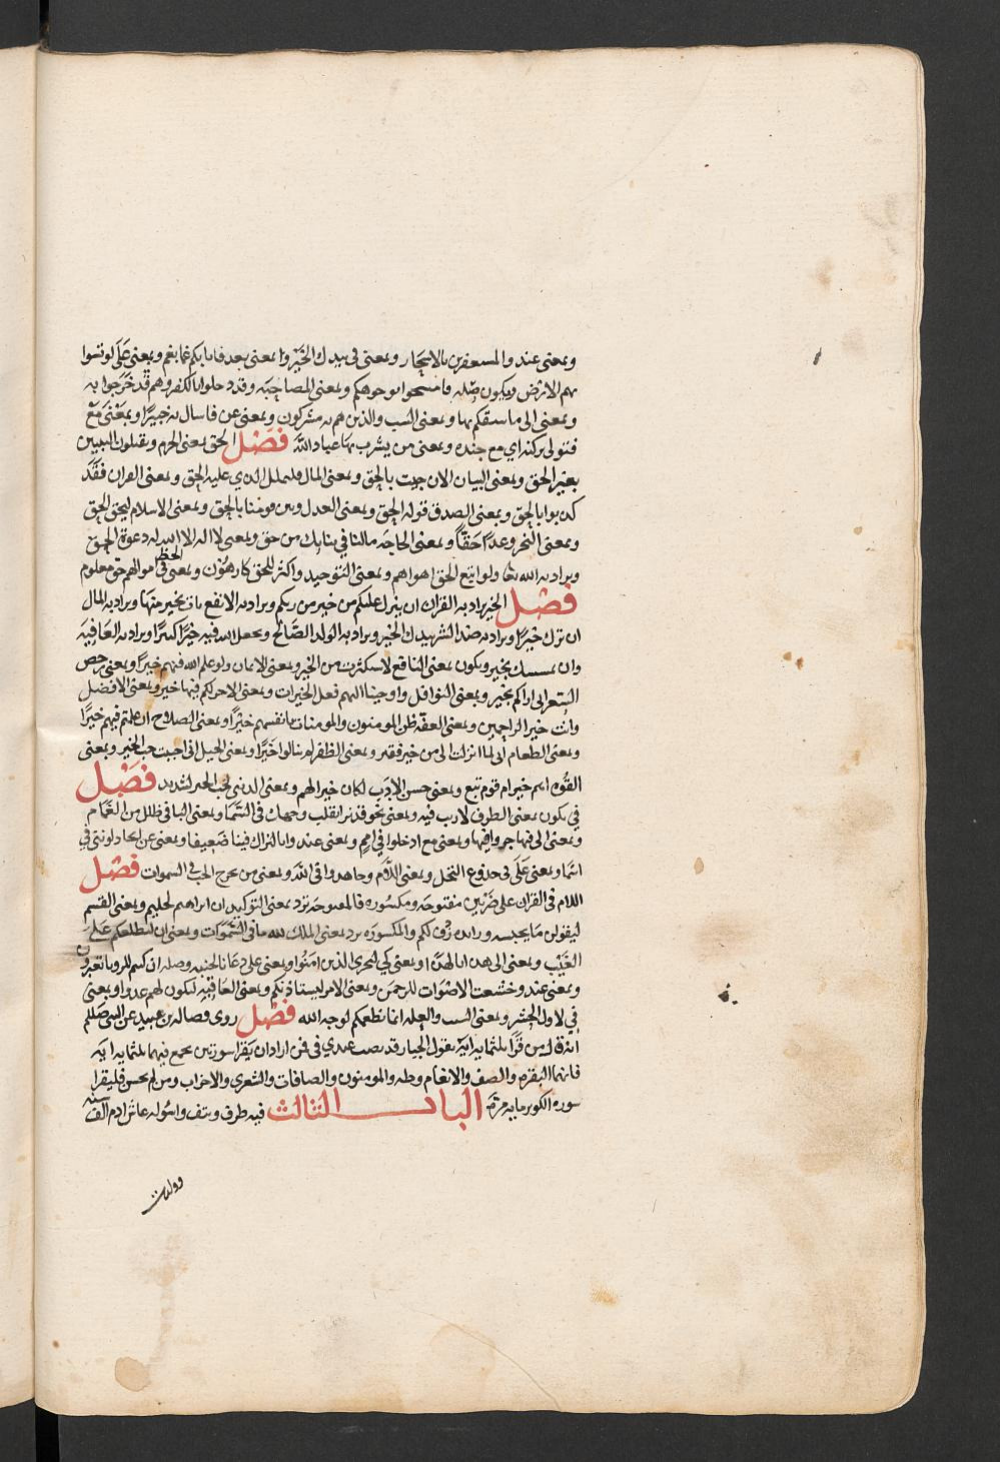 وبمعنى عند والمستغفرين بالاسحار وبمعنى في بيدك الخير وا بمعنى بعد فاثابكم غما بغم وبمعنى على لو تسوا
بهم الارض ويكون صله فامسحوا بوجوهكم وبمعنى المصاحبة وقد دخلوا بالكفر وهم قد خرجوا به
وبمعنى الى ما سبقكم بها وبمعنى السبب والذين هم به مشركون وبمعنى عن فاسال به خبيرا وبمعنى مع
فتولى بركنه اي مع جنده وبمعنى من يشرب بها عباد الله فصل الحق بمعنى الجرم ويقتلون النبيين
بغير الحق وبمعنى البيان الان جيت بالحق وبمعنى المال فليملل الذي عليه الحق وبمعنى القران فقد
كذبوا بالحق وبمعنى الصدق قوله الحق وبمعنى العدل وبين قومنا بالحق وبمعنى الاسلام ليحق الحق
وبمعنى وعدا حقا وبمعنى الحاجة مالنا في بناتك من حق وبمعنى لا اله الا الله له دعوة الحق
ويراد به الله تعا ولو اتبع الحق اهواهم وبمعنى التوحيد واكثرهم للحق كارهون وبمعنى الحظ في اموالهم حق معلوم
فصل الخير يراد به القران ان ينزل عليكم من خير من ربكم ويراد به الانفع نات بخير منها ويراد به المال
ان ترك خيرا ويراد به ضد الشر بيدك الخير ويراد به الولد الصالح ويجعل الله فيه خيرا كثيرا ويراد به العافية
وان يمسسك بخير ويكون بمعنى النافع لاستكثرت من الخير وبمعنى الايمان ولو علم الله فيهم خيرا وبمعنى رخص
السعر اني اراكم بخير وبمعنى النوافل واوحينا اليهم فعل الخيرات وبمعنى الاجر لكم فيها خير وبمعنى الافضل
وانت خير الراحمين وبمعنى العفة ظن المومنون والمومنات بانفسهم خيرا وبمعنى الصلاح ان علمتم فيهم خيرا
وبمعنى الطعام اني لما انزلت الي من خير فقير وبمعنى الظفر لم ينالوا خيرا وبمعنى الخيل اني احببت حب الخير وبمعنى
القوة اهم خير ام قوم تبع وبمعنى حسن الادب لكان خيرا لهم وبمعنى الدنيا لحب الخير لشديد فصل
في يكون بمعنى الظرف لا ريب فيه وبمعنى نحو قد نرى تقلب وجهك في السما وبمعنى البا في ظلل من الغمام
وبمعنى الى فتهاجروا فيها وبمعنى مع ادخلوا في امم وبمعنى عند وانا لنراك فينا ضعيفا وبمعنى عن اتجادلونني في
اسما وبمعنى على في جذوع النخل وبمعنى اللام وجاهدوا في الله وبمعنى من يخرج الخب في السموات فصل
اللام في القران على ضربين مفتوحة ومكسورة فالمفتوحة ترد بمعنى التوكيد ان ابراهيم لحليم وبمعنى القسم
ليقولن ما يحبسه وزايده ردف لكم والمكسورة ترد بمعنى الملك لله ما في السموات وبمعنى ان ليطلعكم على
الغيب وبمعنى الى هدانا لهذا وبمعنى كي ليجزي الذين امنوا وبمعنى على دعانا لجنبه وصله ان كنتم للرويا تعبرون
وبمعنى عند وخشعت الاصوات للرحمن وبمعنى الامر ليستاذنكم وبمعنى العاقبة ليكون لهم عدوا وبمعنى
في لاول الحشر وبمعنى السبب والعله انما نطعمكم لوجه الله فصل روى فضالة بن عبيد عن النبي صللم
انه قال من قرا بثلثمايه اية يقول الجبار قد نصب عبدي في فمن اراد ان يقرا سورتين يجمع فيهما ثلثمايه اية
فانهما البقره والصف والانعام وطه والمومنون والصافات والشعرى والاحزاب ومن لم يحسن فليقرا
سورة الكوثر مايه مرة الباب الثالث فيه طرف ونتف واسوله عاش ادم الف سنه
وولدت